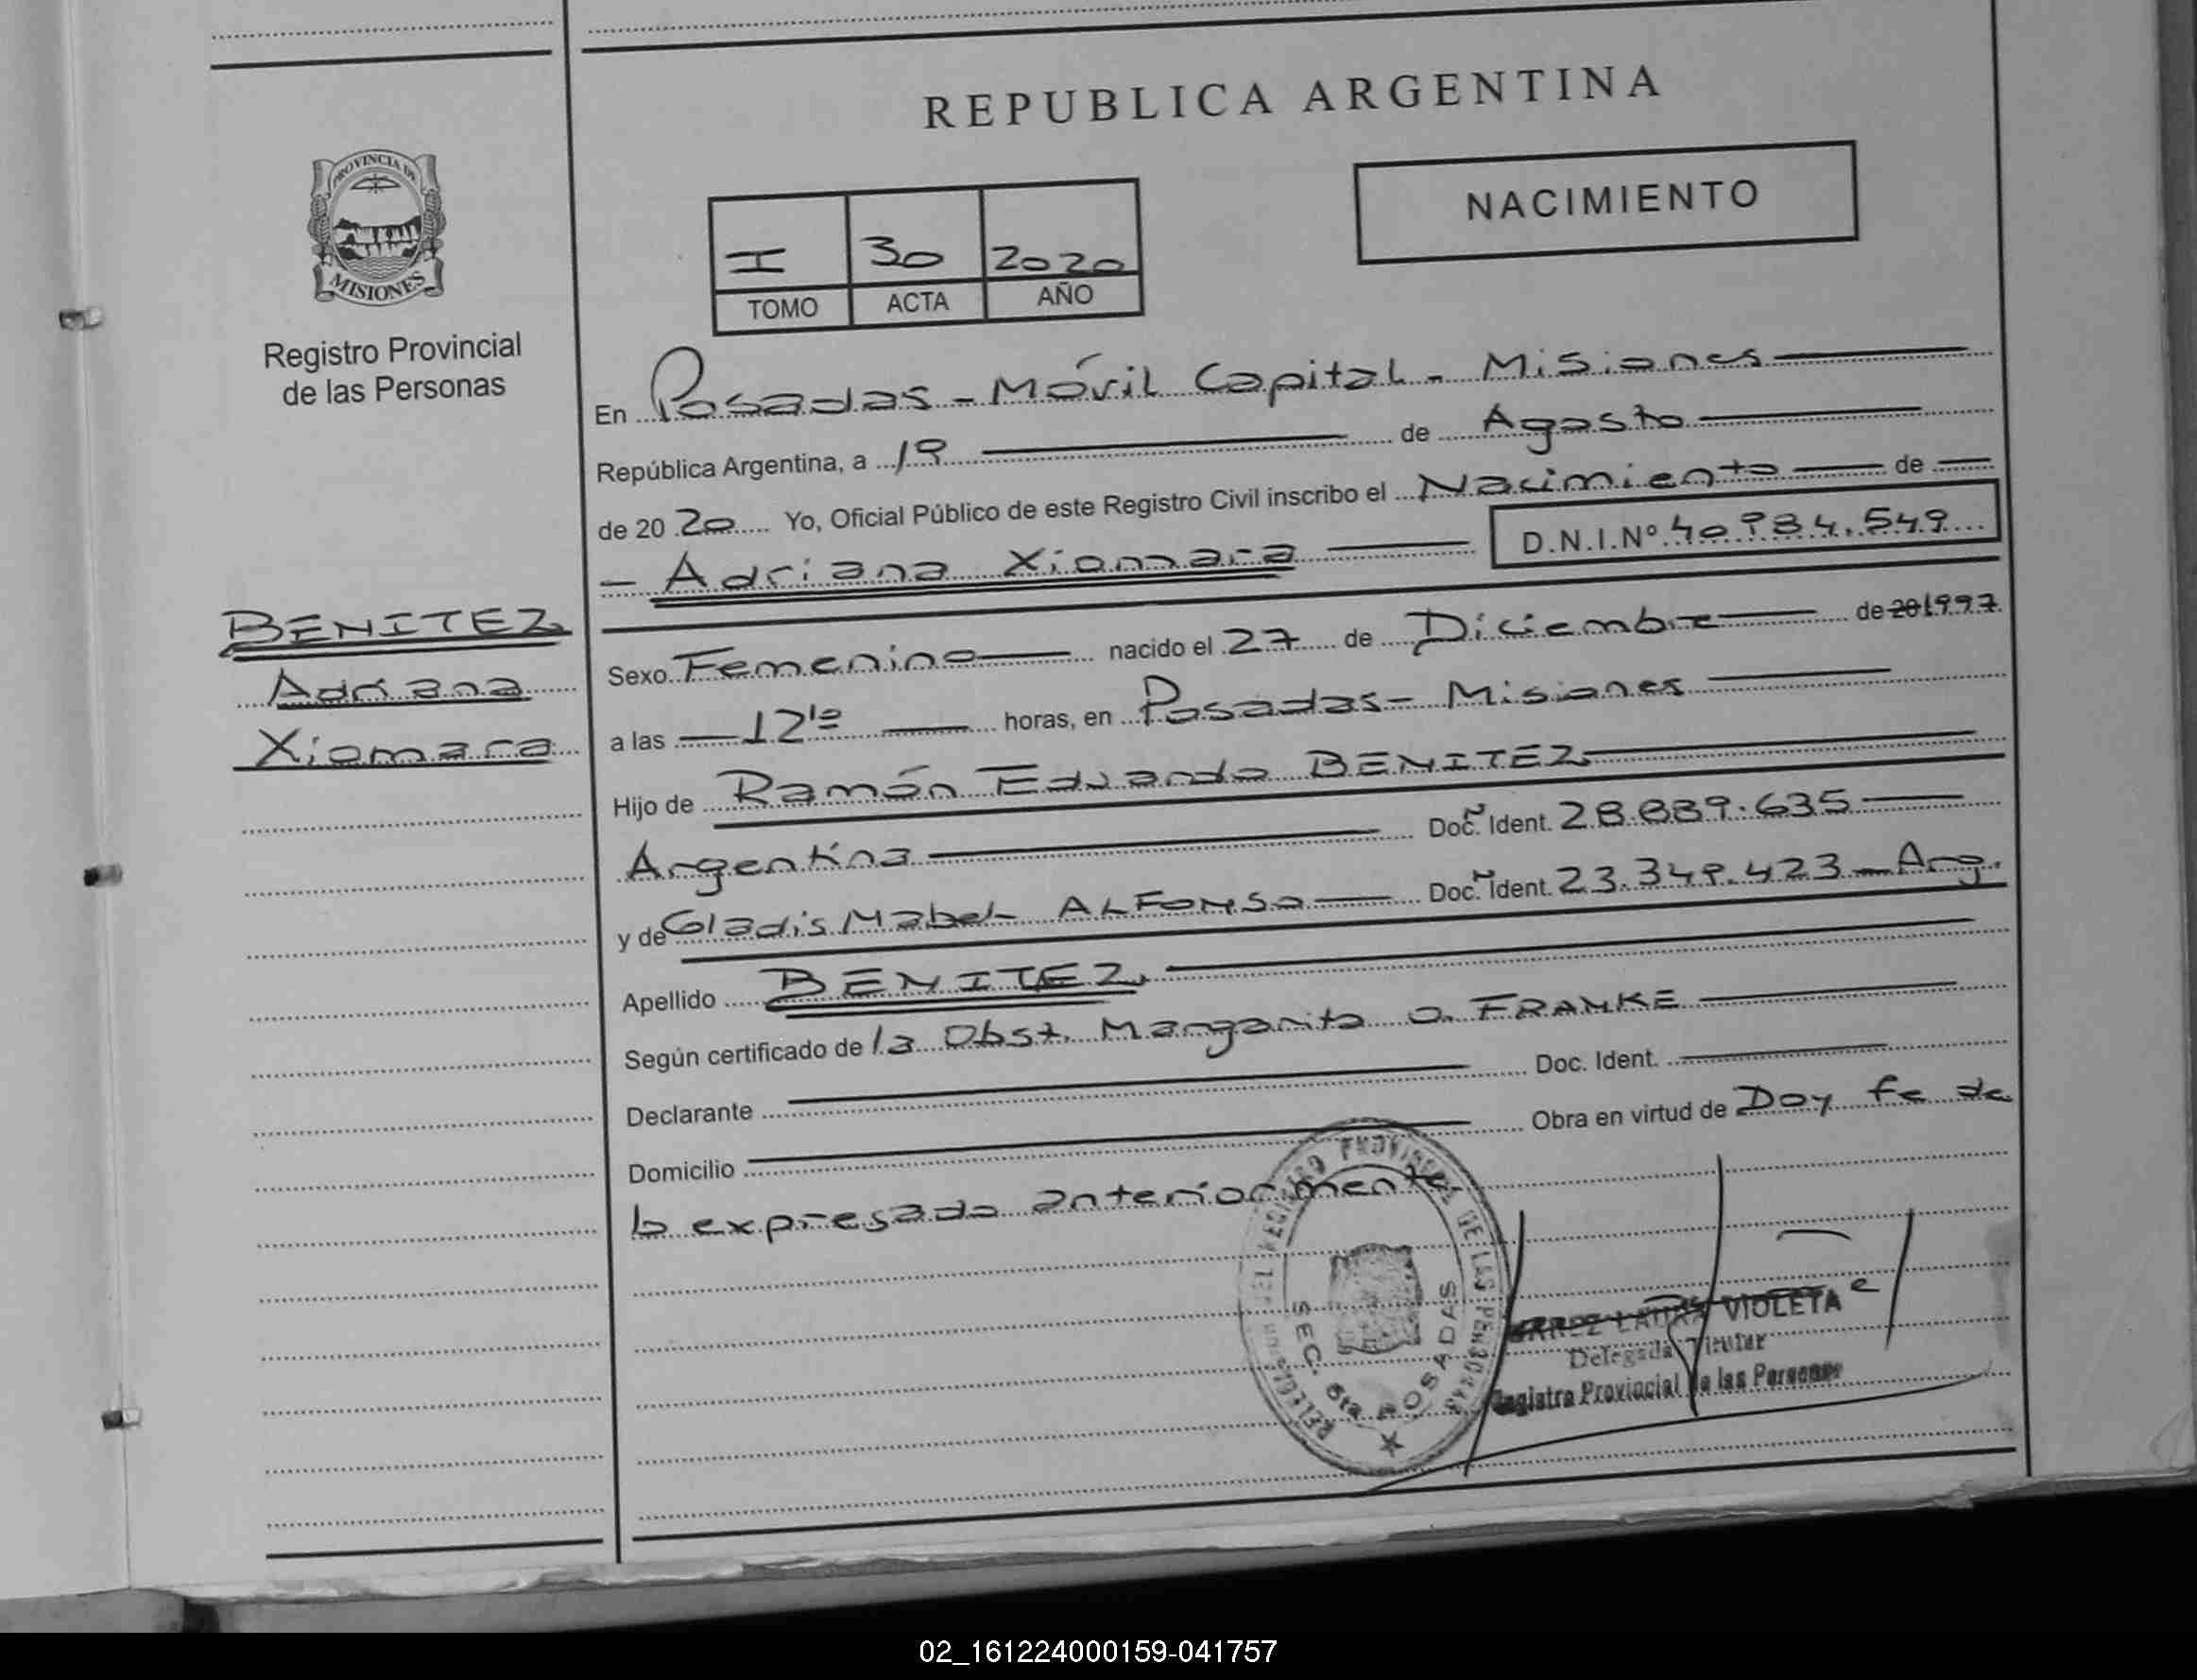 REPUBLICA ARGENTINA
PROVINCIA DE
MISIONES
Registro Provincial
de las Personas
NACIMIENTO
I 30 2020
TOMO ACTA AÑO
En Posadas - Móvil Capital - Misiones
República Argentina, a 19 de Agosto
de 20 20 Yo, Oficial Público de este Registro Civil inscribo el Nacimiento de
- Adriana Xiomara D.N.I.Nº 40.984.549
BENITEZ
Adriana
Xiomara
Sexo Femenino nacido el 27 de Diciembre de 20 1997
a las 12 horas, en Posadas - Misiones
Hijo de Ramón Eduardo BENITEZ
Argentina Doc. Ident. 28.889.635
y de Gladis Mabel ALFONSO Doc. Ident. 23.349.423 - Arg.
Apellido BENITEZ
Según certificado de la Obst. Margarita O. FRANKE
Declarante Doc. Ident.
Domicilio Obra en virtud de Doy fe de
lo expresado anteriormente
DEL REGISTRO PROVINCIAL DE LAS PERSONAS
SEC. 6ta POSADAS
LAURA VIOLETA
Delegada Titular
Registro Provincial de las Personas
02_161224000159-041757